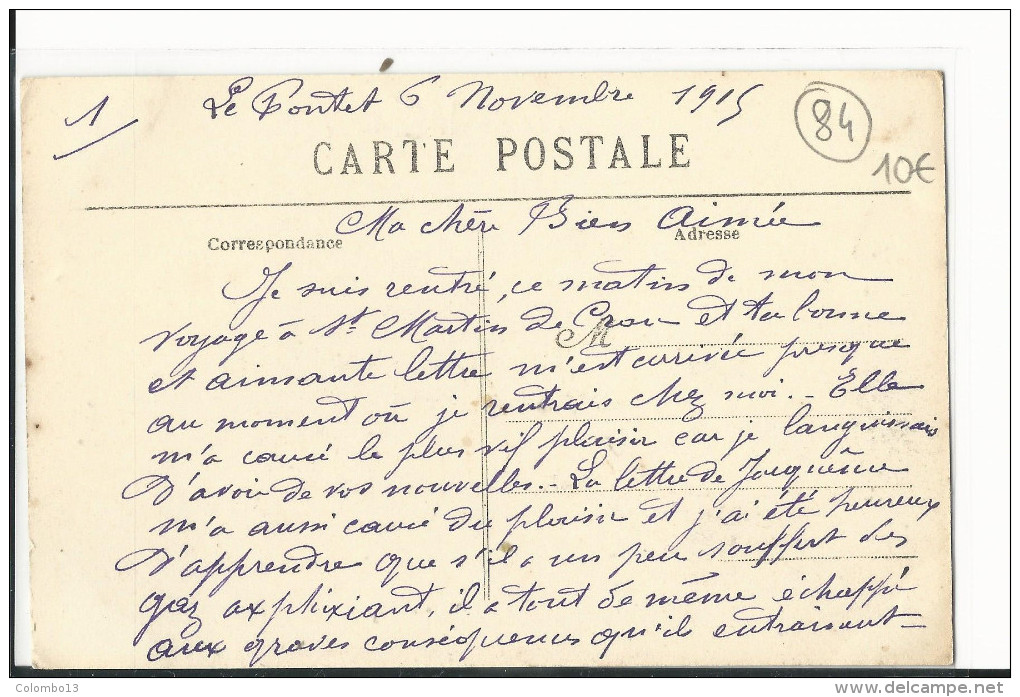 1/
Le Pontet 6 Novembre 1915
84
10€
CARTE POSTALE
Ma chère Bien Aimée
Correspondance
Adresse
M
Je suis rentré, ce matin de mon
voyage à St. Martin de Crau et ta bonne
et aimante lettre m'est arrivée presque
au moment où je rentrais chez moi. - Elle
m'a causé le plus vif plaisir car je languissais
d'avoir de vos nouvelles. - La lettre de
m'a aussi causé du plaisir et j'ai été heureux
d'apprendre que s'il a un peu souffert des
gaz axphixiant, il a tout de même échappé
aux graves conséquences qu'ils entraisent -
Colombo13
delcampe.net